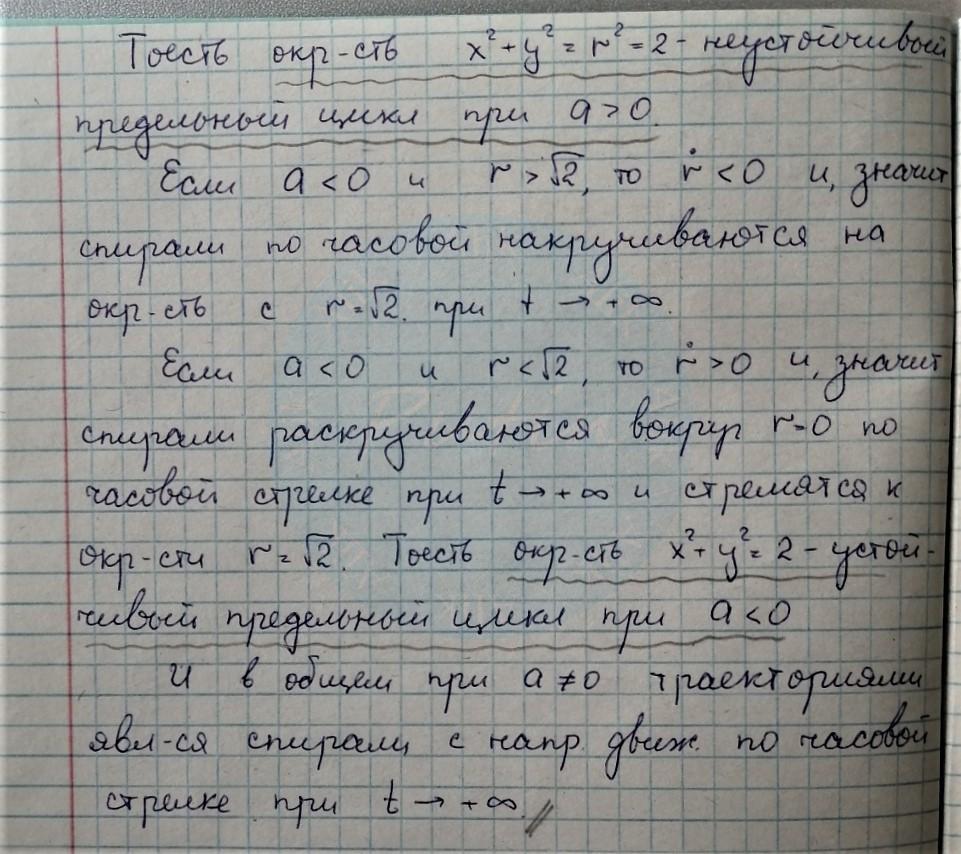 Тоесть окр-сть x²+y²=r²=2 - неустойчивый
предельный цикл при a>0.
Если a<0 и r>√2, то ṙ<0 и, значит
спирали по часовой накручиваются на
окр-сть с r=√2. при t → +∞.
Если a<0 и r<√2, то ṙ>0 и, значит
спирали раскручиваются вокруг r=0 по
часовой стрелке при t → +∞ и стремятся к
окр-сти r=√2. Тоесть окр-сть x²+y²=2 - устой-
чивый предельный цикл при a<0
И в общем при a≠0 траекториями
явл-ся спирали с напр. движ. по часовой
стрелке при t → +∞.